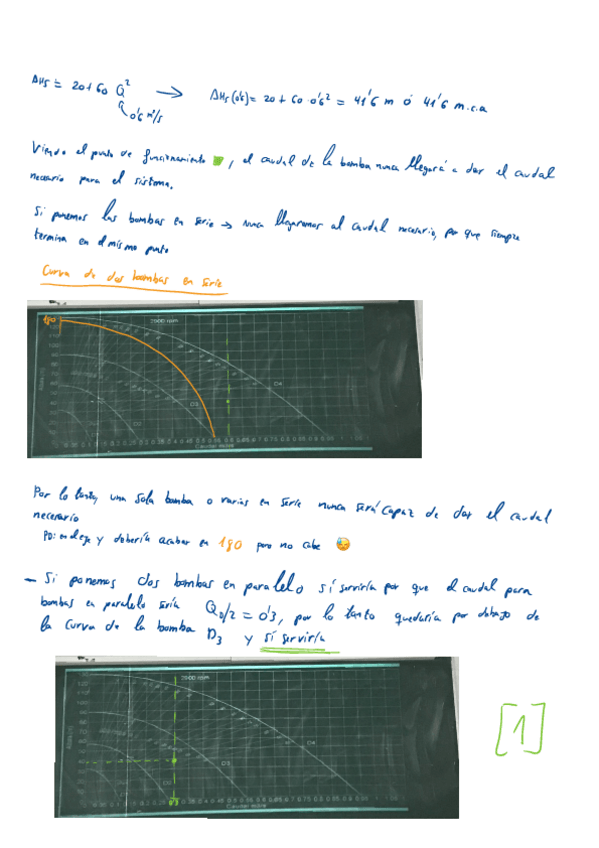 ΔHs = 20+60 Q²
0'6 m³/s
→ ΔHs(0'6) = 20 + 60 · 0'6² = 41'6 m ó 41'6 m.c.a
Viendo el punto de funcionamiento , el caudal de la bomba nunca llegará a dar el caudal
necesario para el sistema.
Si ponemos las bombas en serie → nunca llegaremos al caudal necesario, por que siempre
termina en el mismo punto
Curva de dos bombas en serie
180
2900 rpm
D4
D3
Por lo tanto, una sola bomba o varias en serie nunca será capaz de dar el caudal
necesario
PD: en el eje y debería acabar en 180 pero no cabe 😅
- Si ponemos dos bombas en paralelo sí serviría por que el caudal para
bombas en paralelo sería Q0/2 = 0'3, por lo tanto quedaría por debajo de
la curva de la bomba D3 y sí serviría
2900 rpm
D4
D3
0'3
[1]